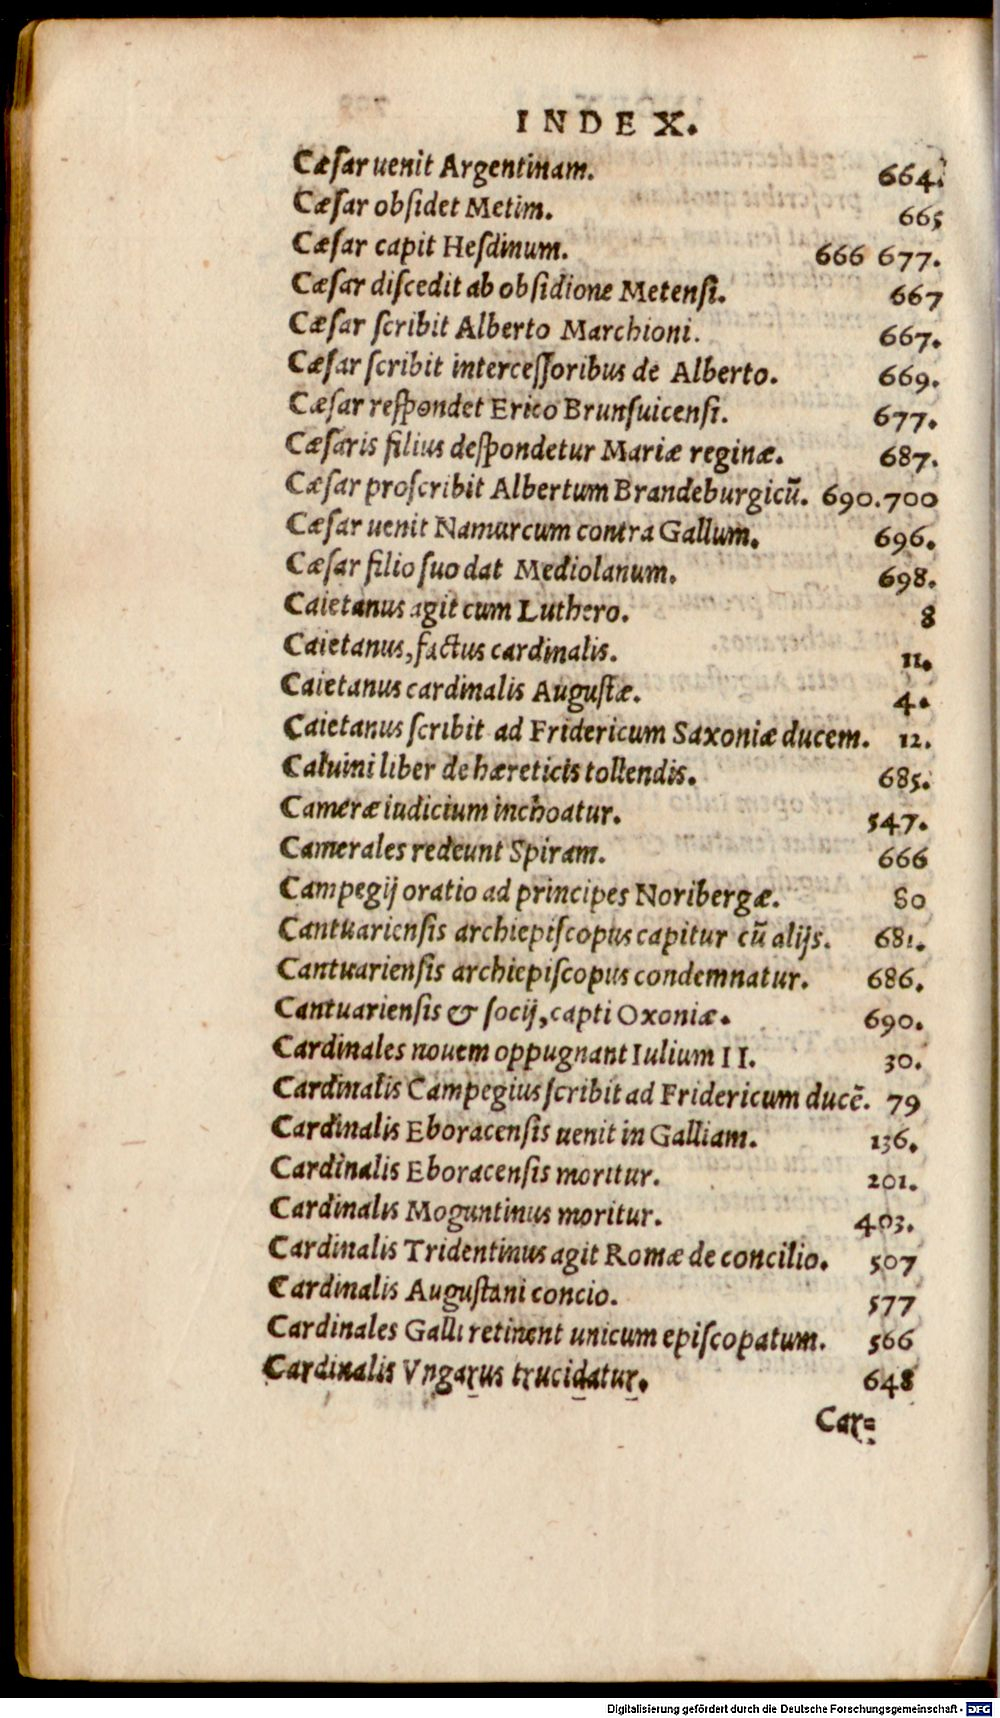 INDEX.
Cæſar uenit Argentinam. 664.
Cæſar obſidet Metim. 665
Cæſar capit Heſdinum. 666 677.
Cæſar diſcedit ab obſidione Metenſi. 667
Cæſar ſcribit Alberto Marchioni. 667.
Cæſar ſcribit interceſſoribus de Alberto. 669.
Cæſar reſpondet Erico Brunſuicenſi. 677.
Cæſaris filius deſpondetur Mariæ reginæ. 687.
Cæſar proſcribit Albertum Brandeburgicū. 690.700
Cæſar uenit Namurcum contra Gallum. 696.
Cæſar filio ſuo dat Mediolanum. 698.
Caietanus agit cum Luthero. 8
Caietanus, factus cardinalis. 11.
Caietanus cardinalis Auguſtæ. 4.
Caietanus ſcribit ad Fridericum Saxoniæ ducem. 12.
Caluini liber de hæreticis tollendis. 685.
Cameræ iudicium inchoatur. 547.
Camerales redeunt Spiram. 666
Campegij oratio ad principes Noribergæ. 80
Cantuarienſis archiepiſcopus capitur cū alijs. 681.
Cantuarienſis archiepiſcopus condemnatur. 686.
Cantuarienſis & ſocij, capti Oxoniæ. 690.
Cardinales nouem oppugnant Iulium II. 30.
Cardinalis Campegius ſcribit ad Fridericum ducē. 79
Cardinalis Eboracenſis uenit in Galliam. 136.
Cardinalis Eboracenſis moritur. 201.
Cardinalis Moguntinus moritur. 403.
Cardinalis Tridentinus agit Romæ de concilio. 507
Cardinalis Auguſtani concio. 577
Cardinales Galli retinent unicum epiſcopatum. 566
Cardinalis Vngarus trucidatur. 648
Car=
Digitalisierung gefördert durch die Deutsche Forschungsgemeinschaft - DFG